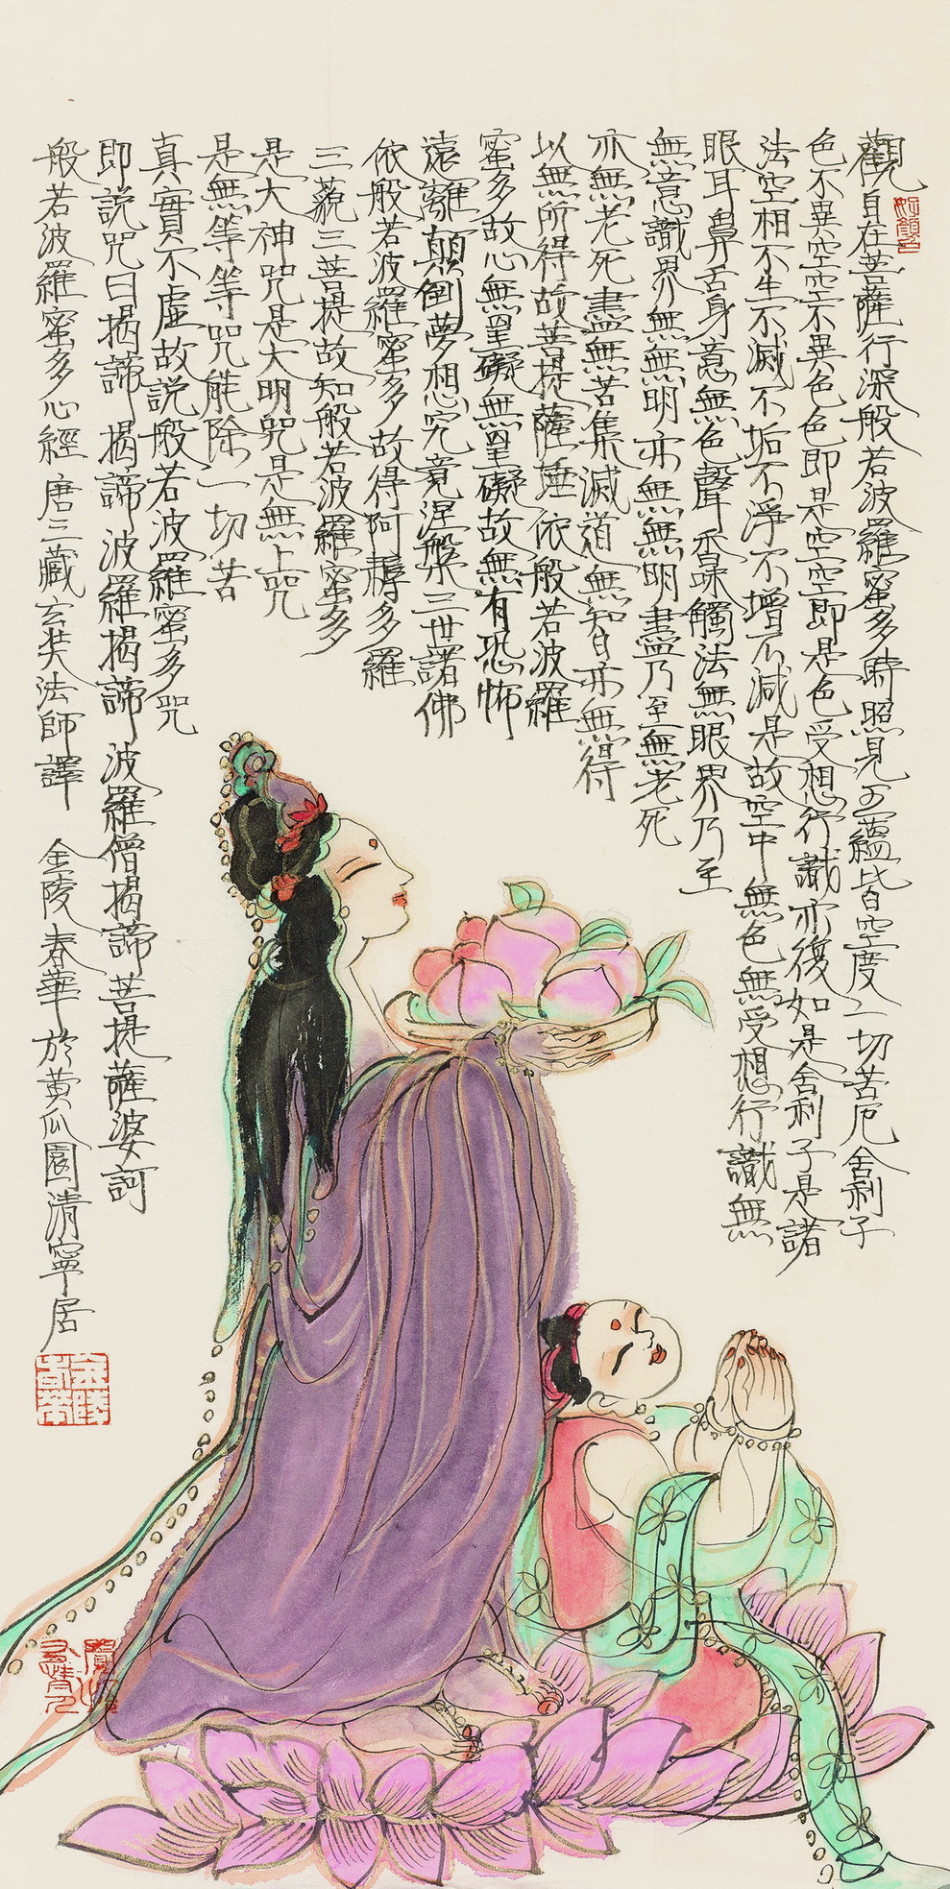 觀自在菩薩行深般若波羅蜜多時照見五蘊皆空度一切苦厄舍利子
色不異空空不異色色即是空空即是色受想行識亦復如是舍利子是諸
法空相不生不滅不垢不淨不增不減是故空中無色無受想行識無
眼耳鼻舌身意無色聲香味觸法無眼界乃至
無意識界無無明亦無無明盡乃至無老死
亦無老死盡無苦集滅道無知自亦無得
以無所得故菩提薩埵依般若波羅
蜜多故心無罣礙無罣礙故無有恐怖
遠離顛倒夢想究竟涅槃三世諸佛
依般若波羅蜜多故得阿耨多羅
三藐三菩提故知般若波羅蜜多
是大神咒是大明咒是無上咒
是無等等咒能除一切苦
真實不虛故說般若波羅蜜多咒
即説咒曰揭諦揭諦波羅揭諦波羅僧揭諦菩提薩婆訶
般若波羅蜜多心經唐三藏玄奘法師譯 金陵春華於黄瓜園清寧居
金陵春華